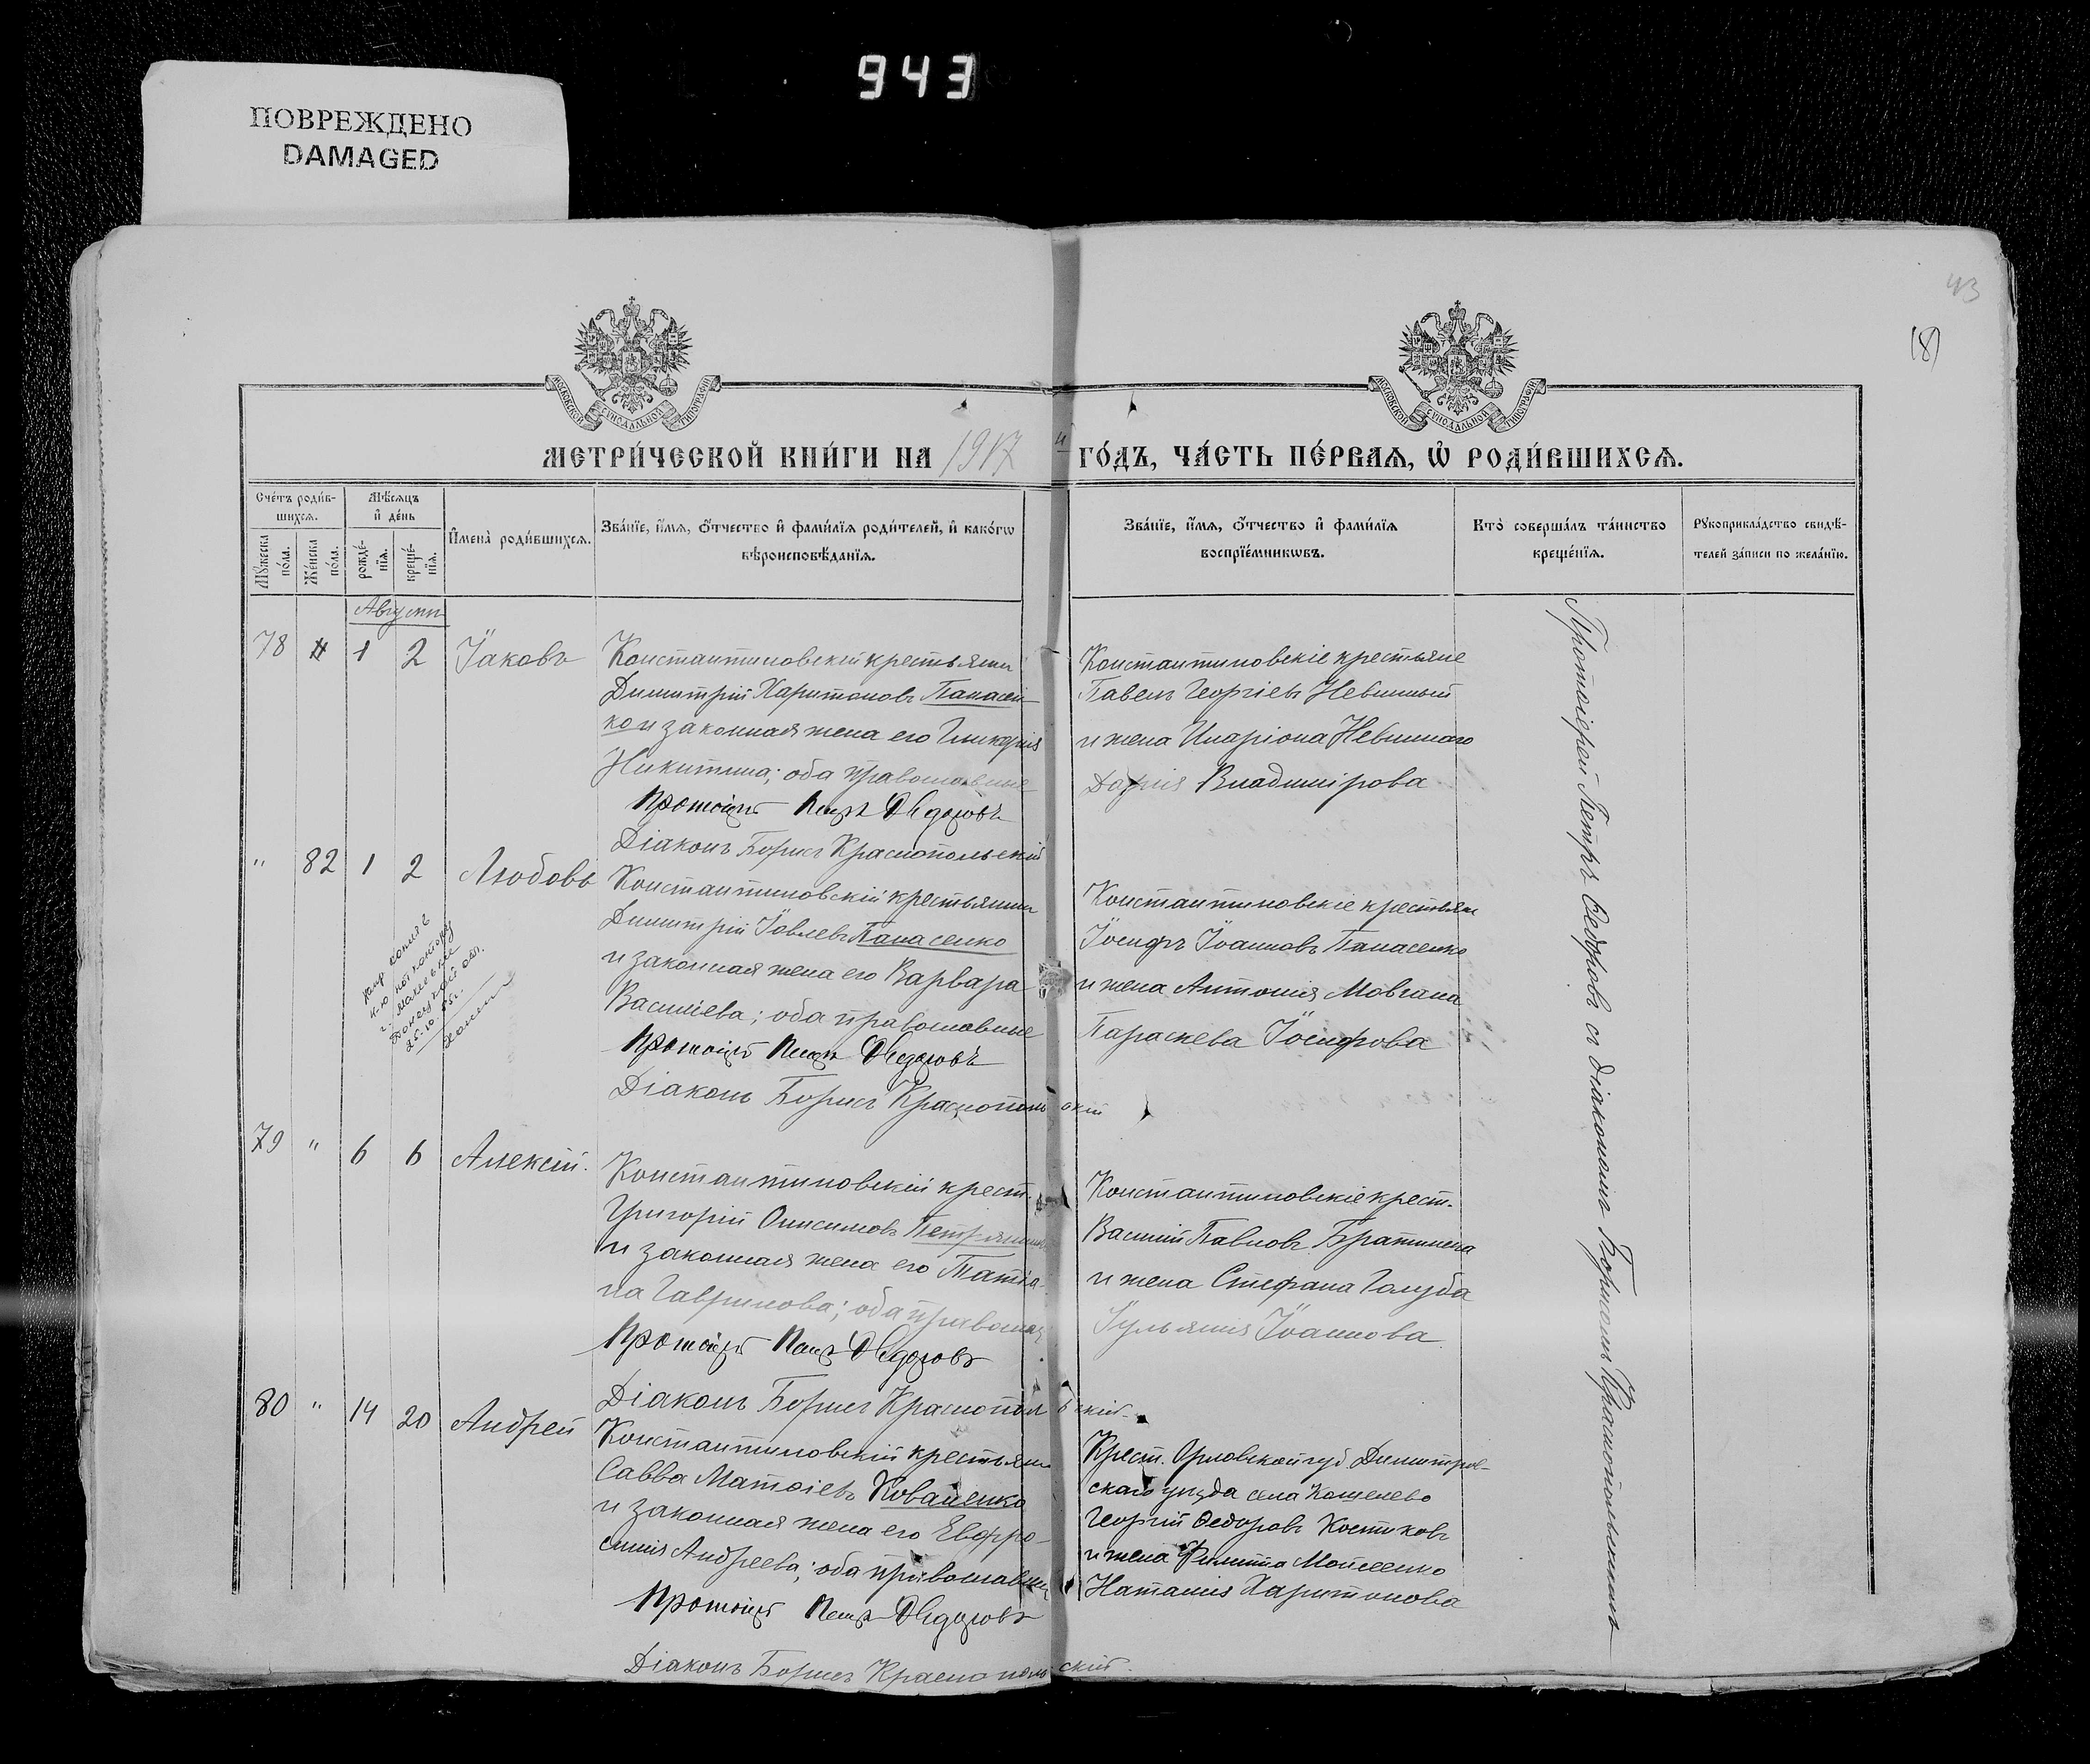 943
ПОВРЕЖДЕНО
DAMAGED
43
(8)
МОСКОВСКОЙ СѴНОДАЛЬНОЙ ТИПОГРАФІИ
МОСКОВСКОЙ СѴНОДАЛЬНОЙ ТИПОГРАФІИ
МЕТРИ́ЧЕСКОЙ КНИ́ГИ НА 1917 ГО́ДЪ, ЧА́СТЬ ПЕ́РВАЯ, Ѡ҆ РОДИ́ВШИХСЯ.
Сче́тъ роди́в-
шихсѧ.
Мꙋ́жеска по́ла.
Же́нска по́ла.
Мѣ́сѧцъ
и҆ де́нь
рожде́-
нїѧ.
креще́-
нїѧ.
И҆мена̀ роди́вшихсѧ.
Зва́нїе, и҆́мѧ, ѻ҆́тчество и҆ фами́лїѧ роди́телей, и҆ како́гѡ
вѣроисповѣ́данїѧ.
Зва́нїе, и҆́мѧ, ѻ҆́тчество и҆ фами́лїѧ
воспрїе́мникѡвъ.
Кто̀ соверша́лъ та́инство
креще́нїѧ.
Рꙋкоприкла́дство свидѣ́-
телей за́писи по жела́нїю.
Августъ
78 1 2 Іаковъ
Константиновскій крестьянинъ
Димитрій Харитоновъ Панасен-
ко и законная жена его Гликерія
Никитина; оба православные
Протоіерей Петръ Ѳедоровъ
Діаконъ Борисъ Краснопольскій
Константиновскіе крестьяне
Павелъ Георгіевъ Невинный
и жена Иларіона Невиннаго
Дарія Владимірова
" 82 1 2 Любовь
Константиновскій крестьянинъ
Димитрій Іовлевъ Панасенко
и законная жена его Варвара
Василіева; оба православные
Протоіерей Петръ Ѳедоровъ
Діаконъ Борисъ Краснопольскій
Константиновскіе крестьяне
Іосифъ Іоанновъ Панасенко
и жена Антонія Мовчана
Параскева Іосифова
копія
г. Макеевке
Донецкой обл.
25.10.55г.
79 " 6 6 Алексій.
Константиновскій крест.
Григорій Онисимовъ
и законная жена его Татіа-
на Гаврилова; оба православ
Протоіерей Петръ Ѳедоровъ
Діаконъ Борисъ Краснопольскій
Константиновскіе крест.
Василій Павловъ Братишка
и жена Стефана Голуба
Іуліанія Іоаннова
80 " 14 20 Андрей
Константиновскій крестьянинъ
Савва Матѳіевъ Коваленко
и законная жена его Евфро-
синія Андреева; оба православные
Протоіерей Петръ Ѳедоровъ
Діаконъ Борисъ Краснопольскій.
Крест. Орловской губ Димитров-
скаго уезда села Кошелево
Георгій Ѳедоровъ Костиковъ
и жена Филиппа Моисеенко
Наталія Харитонова
Протоіерей Петръ Ѳедоровъ съ діакономъ Борисомъ Краснопольскимъ